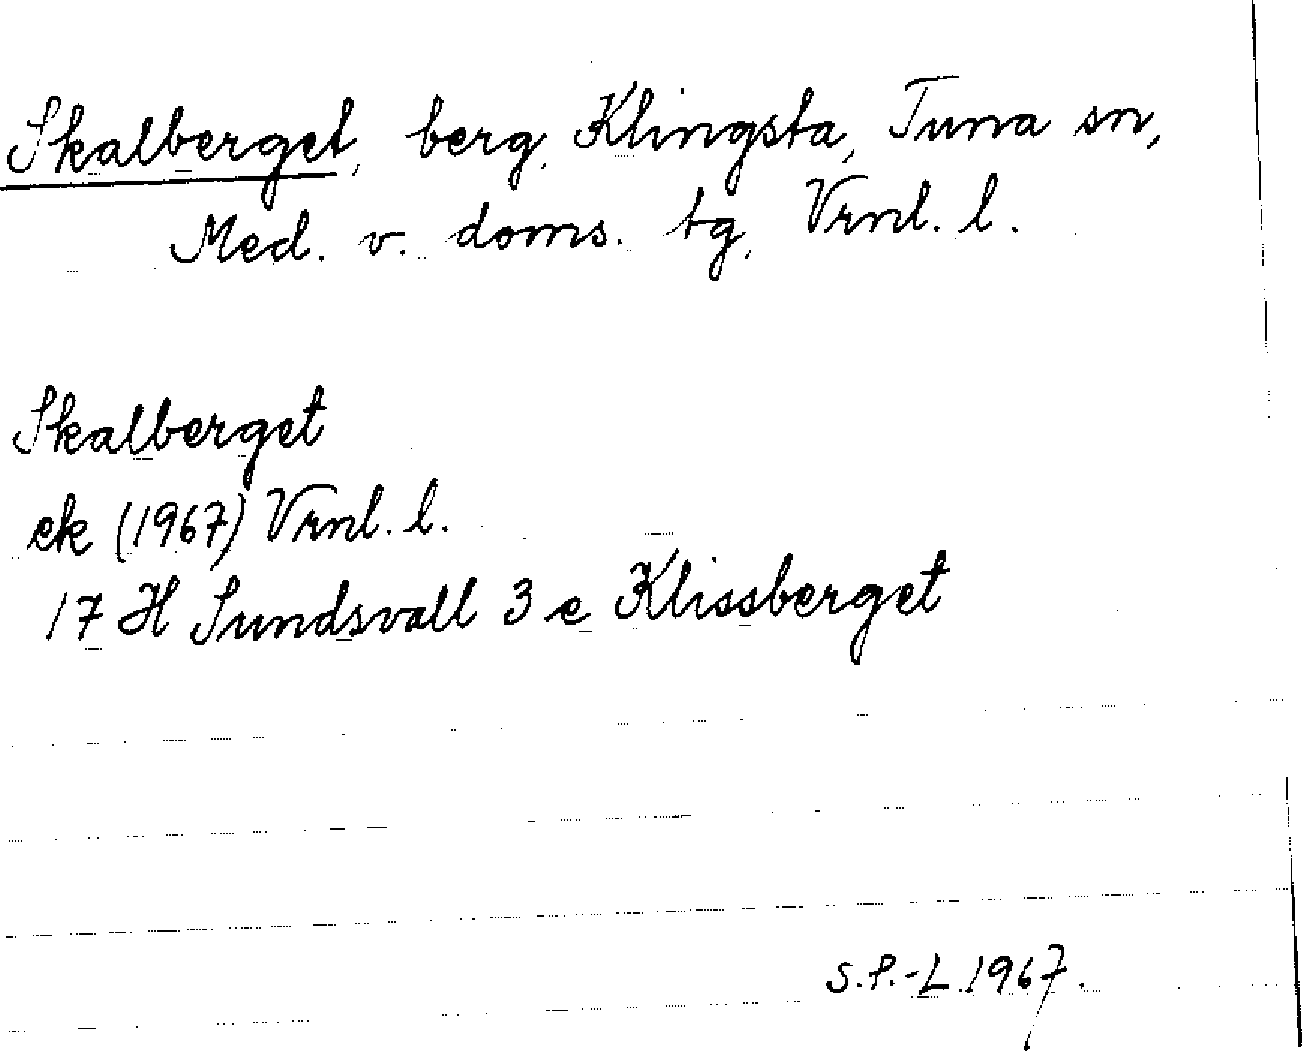 Skalberget, berg, Klingsta, Tuna sn,
Med. v. doms. tg, Vrnl. l.
Skalberget
ek (1967) Vrnl. l.
17 H Sundsvall 3 e Klissberget
S.P.-L 1967.